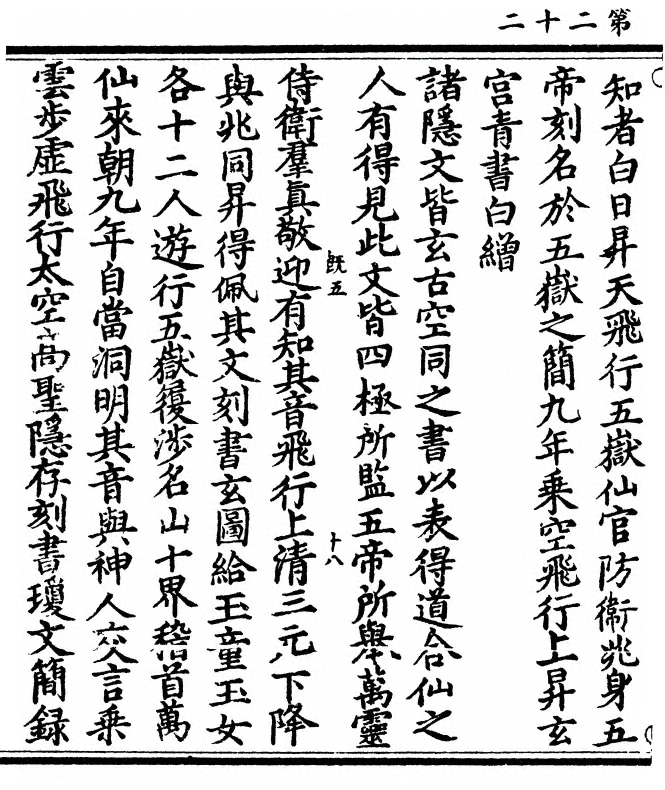 第二十二
知者白日昇天飛行五嶽仙官防衛兆身五
帝刻名於五嶽之簡九年乗空飛行上昇玄
宫青書白繒
諸隱文皆玄古空同之書以表得道合仙之
人有得見此文皆四極所監五帝所舉萬靈
既五
十八
侍衛羣真敬迎有知其音飛行上清三元下降
與兆同昇得佩其文刻書玄圖給玉童玉女
各十二人遊行五嶽復涉名山十界稽首萬
仙來朝九年自當洞明其音與神人交言乗
雲步虚飛行太空高聖隱存刻書瓊文簡録